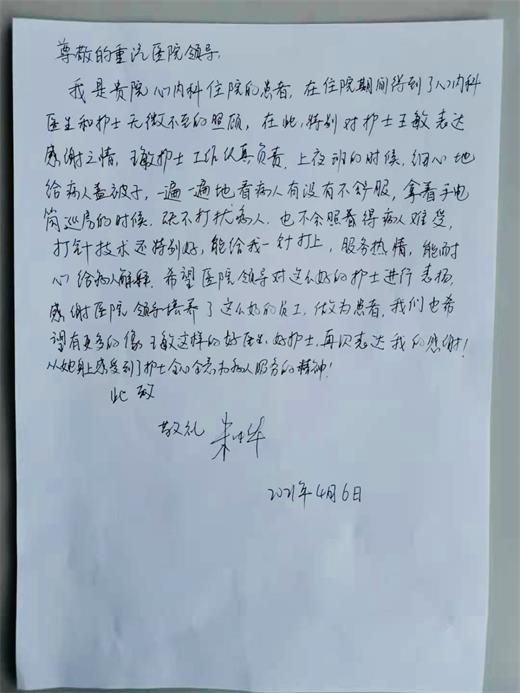 尊敬的重汽医院领导,
我是贵院心内科住院的患者,在住院期间得到了心内科
医生和护士无微不至的照顾,在此,特别对护士王敏表达
感谢之情,王敏护士工作认真负责,上夜班的时候,细心地
给病人盖被子,一遍一遍地看病人有没有不舒服,拿着手电
筒巡房的时候,既不打扰病人,也不会照着得病人难受,
打针技术还特别好,能给我一针打上,服务热情,能耐
心给病人解释,希望医院领导对这么好的护士进行表扬,
感谢医院领导培养了这么好的员工,做为患者,我们也希
望有更多的像王敏这样的好医生,好护士,再次表达我的感谢!
从她身上感受到了护士全心全意为病人服务的精神!
此致
敬礼
2021年4月6日